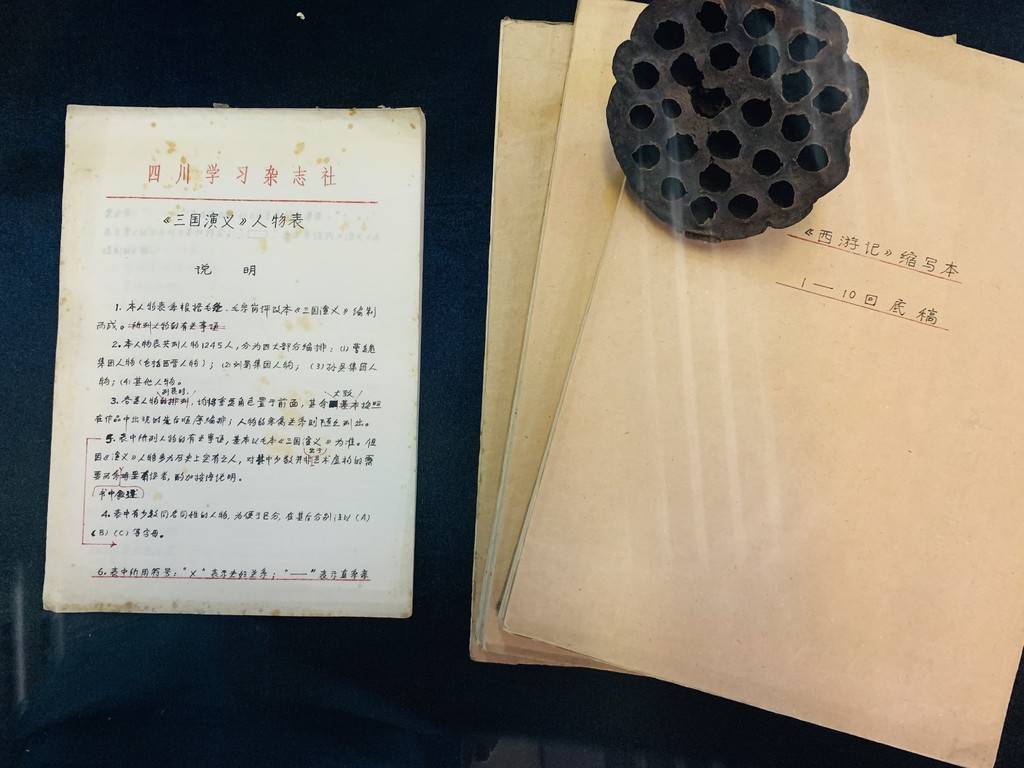 四川学习杂志社
《三国演义》人物表
说 明
1. 本人物表系根据毛纶、毛宗岗评改本《三国演义》编制
而成。所列人物的有关事迹
2. 本人物表共列人物1245人，分为四大部分编排：(1) 曹魏
集团人物（包括西晋人物）；(2) 刘蜀集团人物；(3) 孙吴集团人
物；(4) 其他人物。
列表时，
大致
3. 各类人物的排列，均将重要角色置于前面，其余基本按照
在作品中出现的先后顺序编排；人物的亲属关系则
5. 表中所列人物的有关事迹，基本以毛本《三国演义》为准。但
因《演义》人物多为历史上实有之人，对其中少数并非艺术虚构的需
要而
者，酌加按语说明。
书中
4. 表中有少数同名同姓的人物，为便于区分，在其后分别注以（A）
（B）（C）等字母。
6. 表中所用符号：“×”表示夫妇关系；“——”表示直系亲
《西游记》缩写本
1—10回 底稿